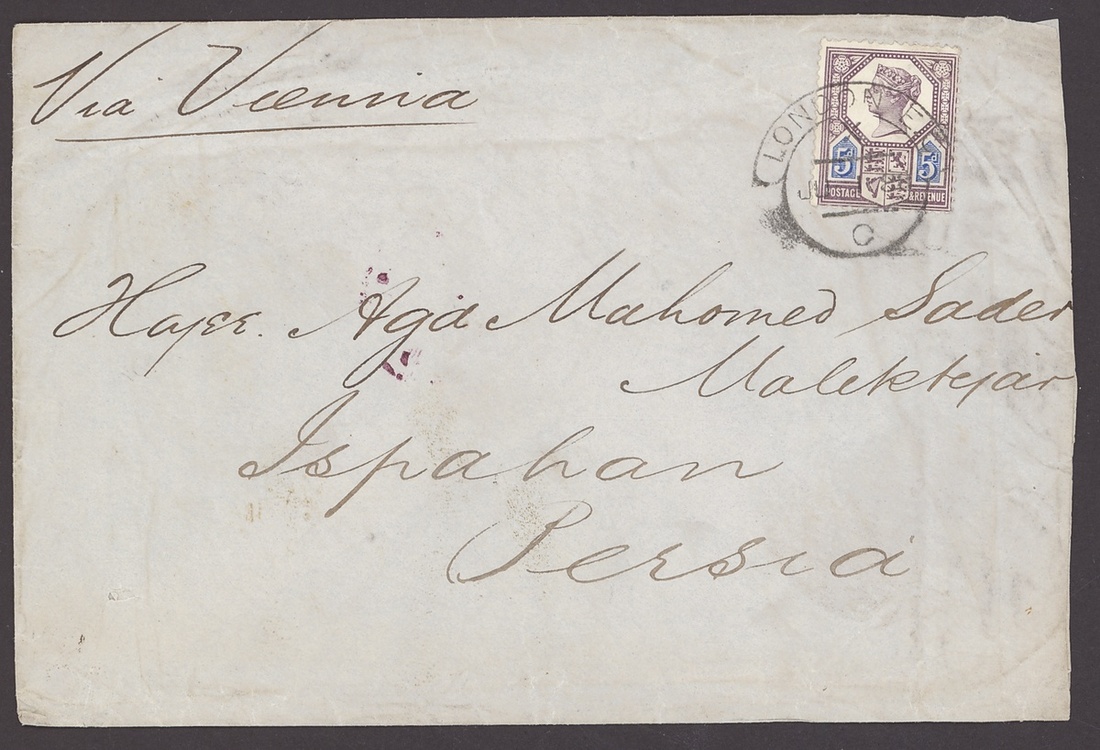 Via Vienna
5d 5d
POSTAGE & REVENUE
LONDON
C
Hajee. Aga Mahomed Sader
Malektejar
Ispahan
Persia